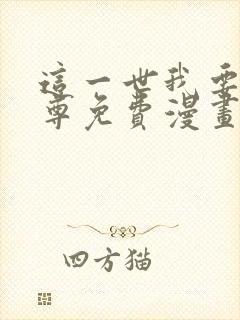 這一世我要
尊免費漫畫
四方猫